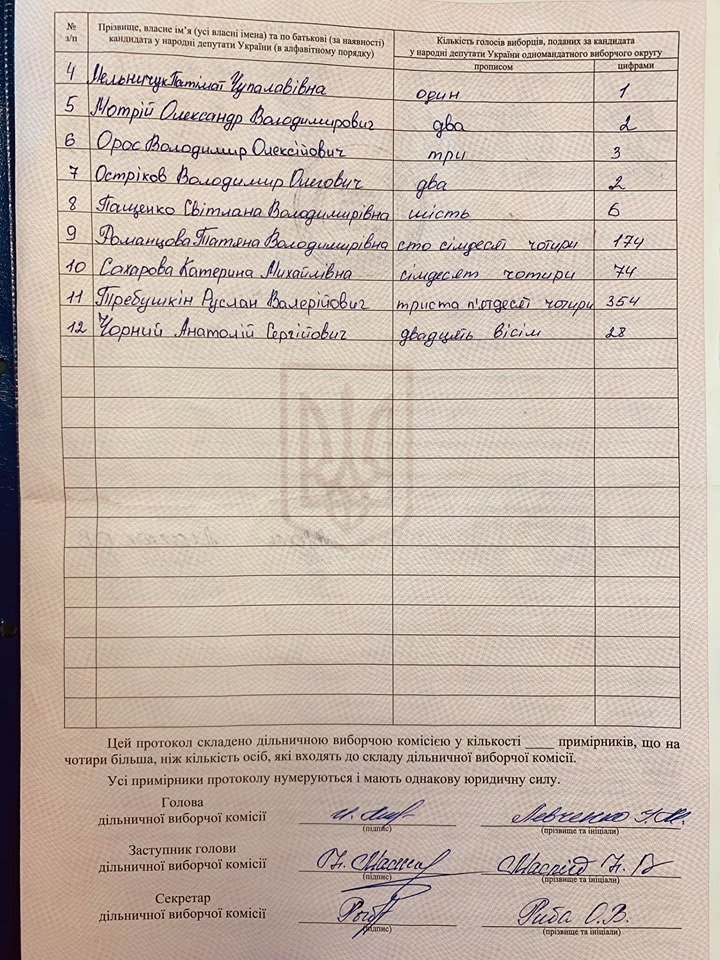 № з/п
Прізвище, власне ім’я (усі власні імена) та по батькові (за наявності)
кандидата у народні депутати України (в алфавітному порядку)
Кількість голосів виборців, поданих за кандидата
у народні депутати України одномандатного виборчого округу
прописом цифрами
4 Мельничук Патімат Чупалавівна один 1
5 Мотрій Олександр Володимирович два 2
6 Орос Володимир Олексійович три 3
7 Остріков Володимир Олегович два 2
8 Пащенко Світлана Володимирівна шість 6
9 Романцова Татяна Володимирівна сто сімдесят чотири 174
10 Сахарова Катерина Михайлівна сімдесят чотири 74
11 Требушкін Руслан Валерійович триста п'ятдесят чотири 354
12 Чорний Анатолій Сергійович двадцять вісім 28
Цей протокол складено дільничною виборчою комісією у кількості ____ примірників, що на
чотири більша, ніж кількість осіб, які входять до складу дільничної виборчої комісії.
Усі примірники протоколу нумеруються і мають однакову юридичну силу.
Голова
дільничної виборчої комісії Левченко
(підпис) (прізвище та ініціали)
Заступник голови
дільничної виборчої комісії
(підпис) (прізвище та ініціали)
Секретар
дільничної виборчої комісії Риба О.В.
(підпис) (прізвище та ініціали)